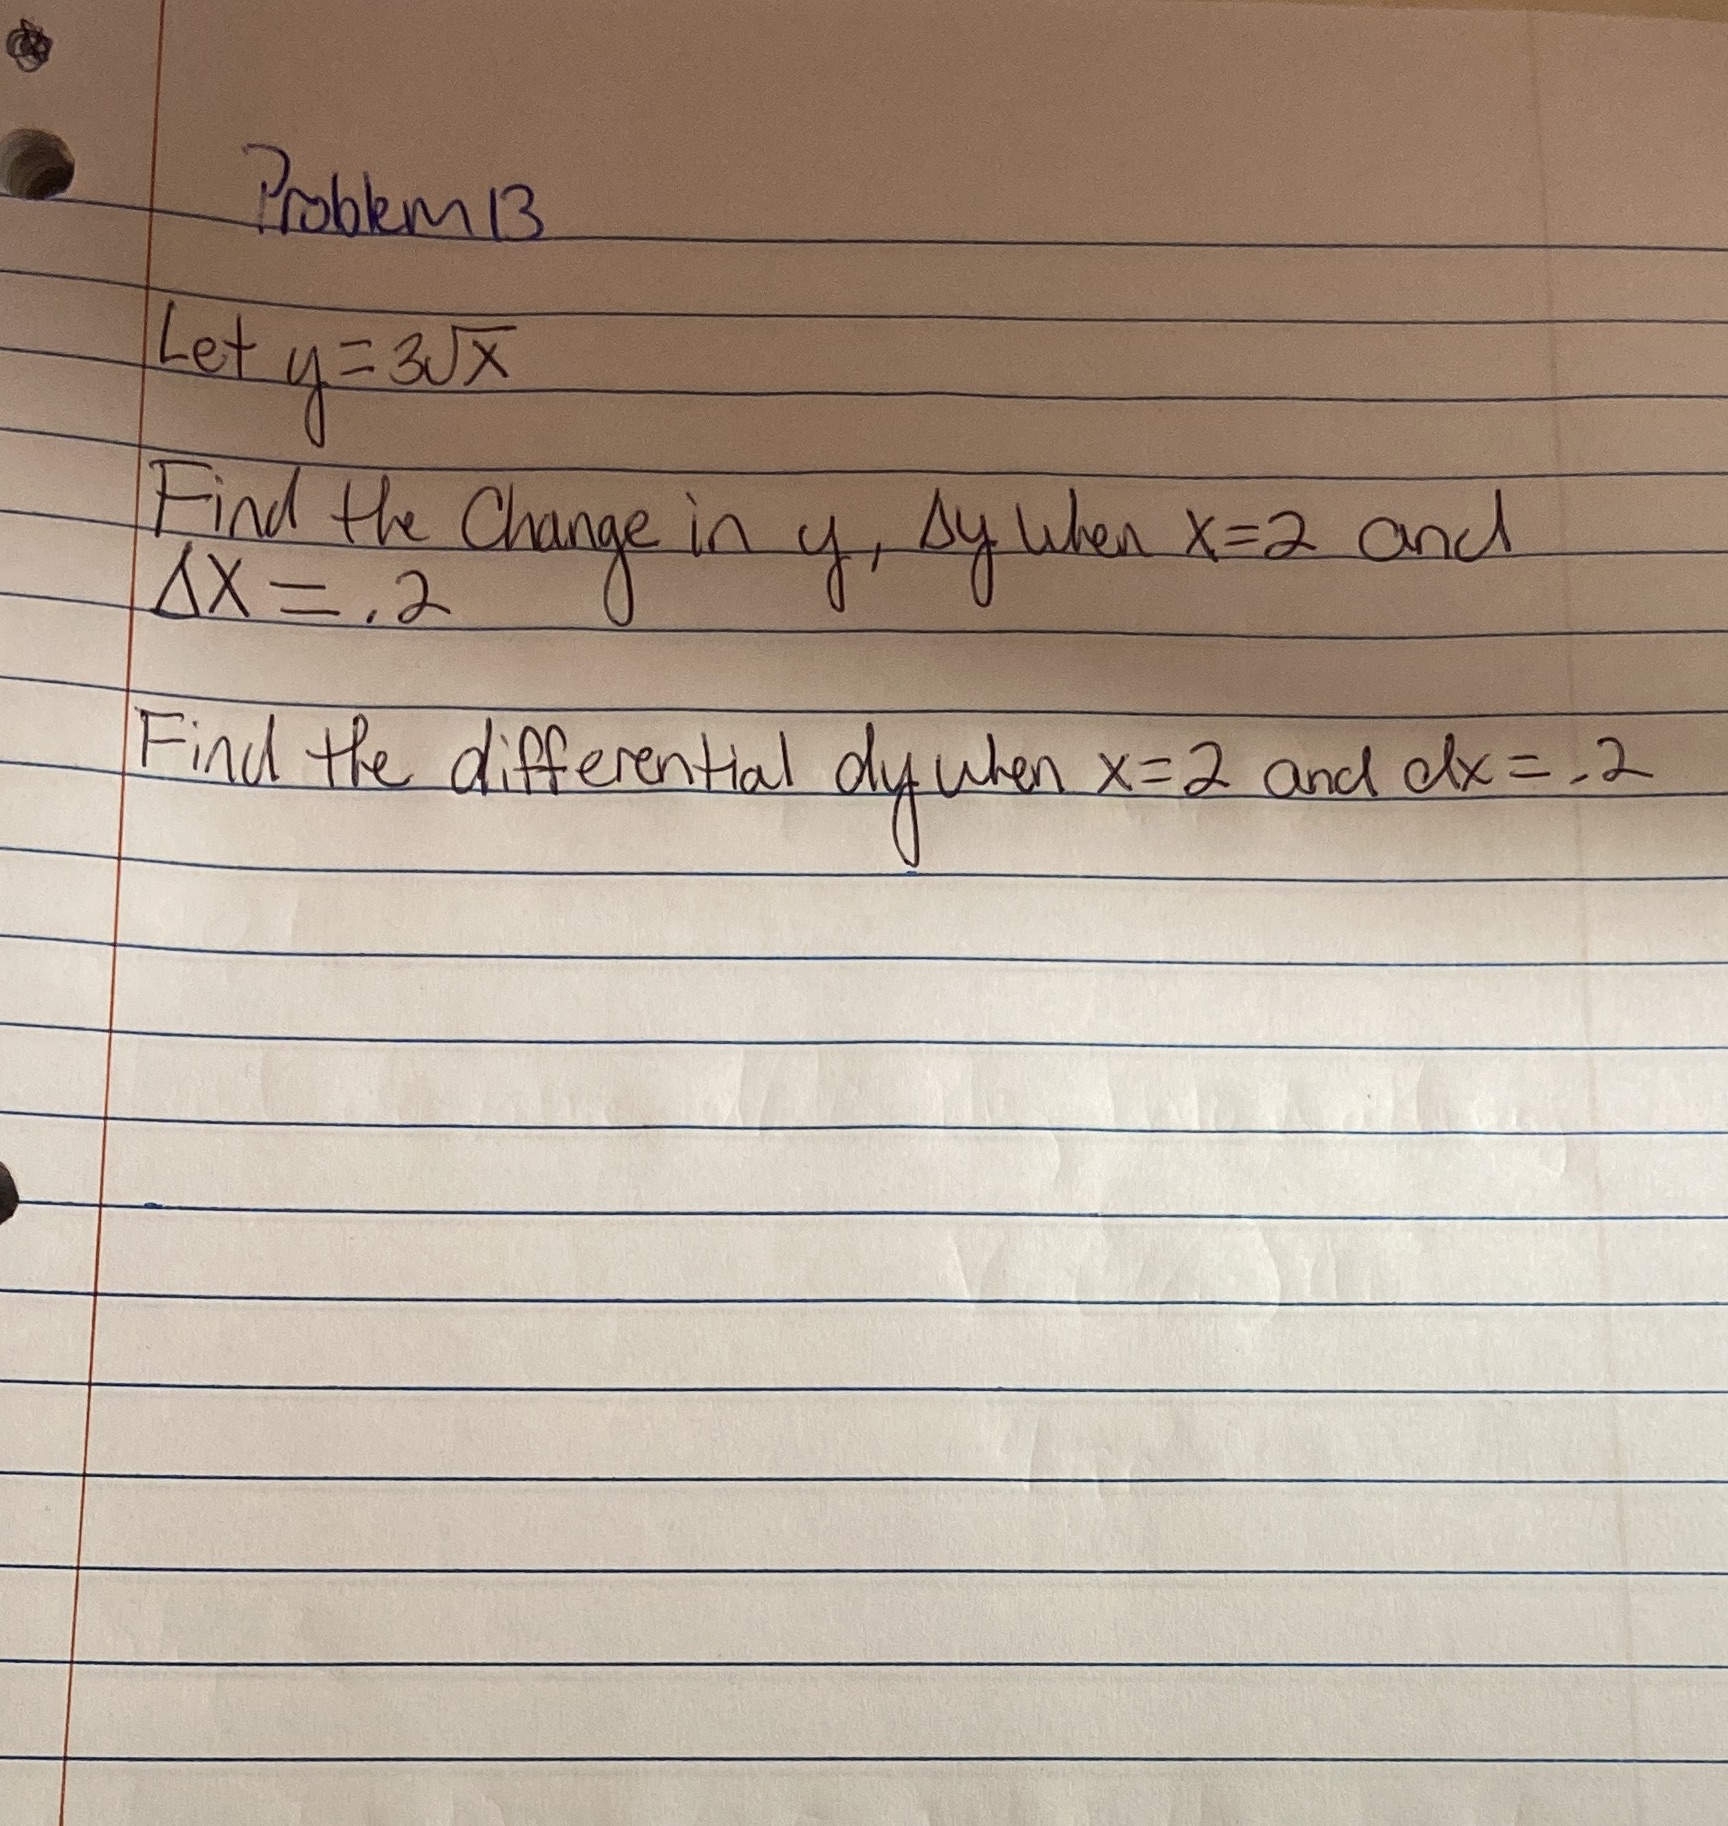 Problem 13
Let y=3√x
Find the Change in y, Δy when x=2 and
ΔX=.2
Find the differential dy when x=2 and dx=.2